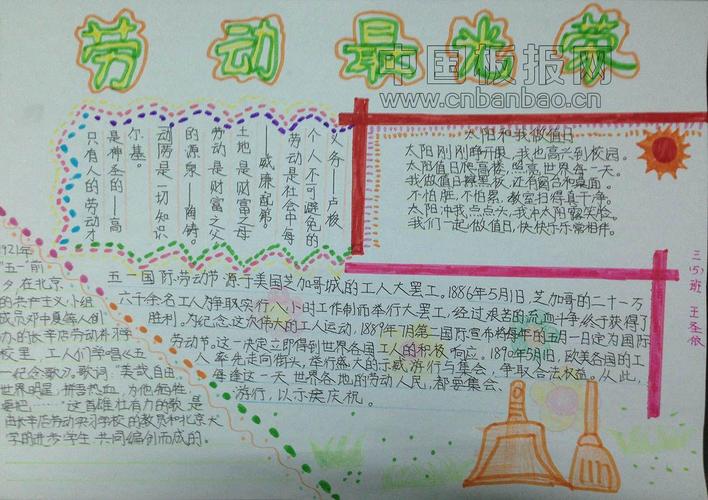 劳动最光荣
中国板报网
www.cnbanbao.cn
只有人的劳动才
是神圣的——高
尔基。
动两是一切知识
的源泉——陶铸。
劳动是财富之父
土地是财富之母
——威廉配第。
劳动是社会中每
个人不可避免的
义务——卢梭
太阳和我做值日
太阳刚刚睁开眼,我也高兴到校园。
太阳值日爬高楼,照亮世界每一天。
我做值日擦黑板,还有窗台和桌面。
不怕脏,不怕累,教室扫得真干净。
太阳冲我点点头,我冲太阳露笑脸。
我们一起做值日,快快乐乐常相伴。
三(5)班
1921年
"五一"前
夕,在北京
的共产主义小组
成员邓中夏等人创
办的长辛店劳动补习学
校里,工人们学唱《五
一纪念歌》。歌词:"美哉自由,
世界明星,拼吾热血,为他牺牲
要把……"这首雄壮有力的歌,是
由长辛店劳动实习学校的教员和北京大
学的进步学生共同编创而成的。
五一国际劳动节源于美国芝加哥城的工人大罢工。1886年5月1日,芝加哥的二十一万
六千余名工人为争取实行八小时工作制而举行大罢工,经过艰苦的流血斗争,终于获得了
胜利。为纪念这次伟大的工人运动,1889年7月第二国际宣布将每年的五月一日定为国际
劳动节。这一决定立即得到世界各国工人的积极响应。1890年5月1日,欧美各国的工
人率先走向街头,举行盛大的示威游行与集会,争取合法权益。从此,
每逢这一天世界各地的劳动人民,都要集会、
游行,以示庆祝。